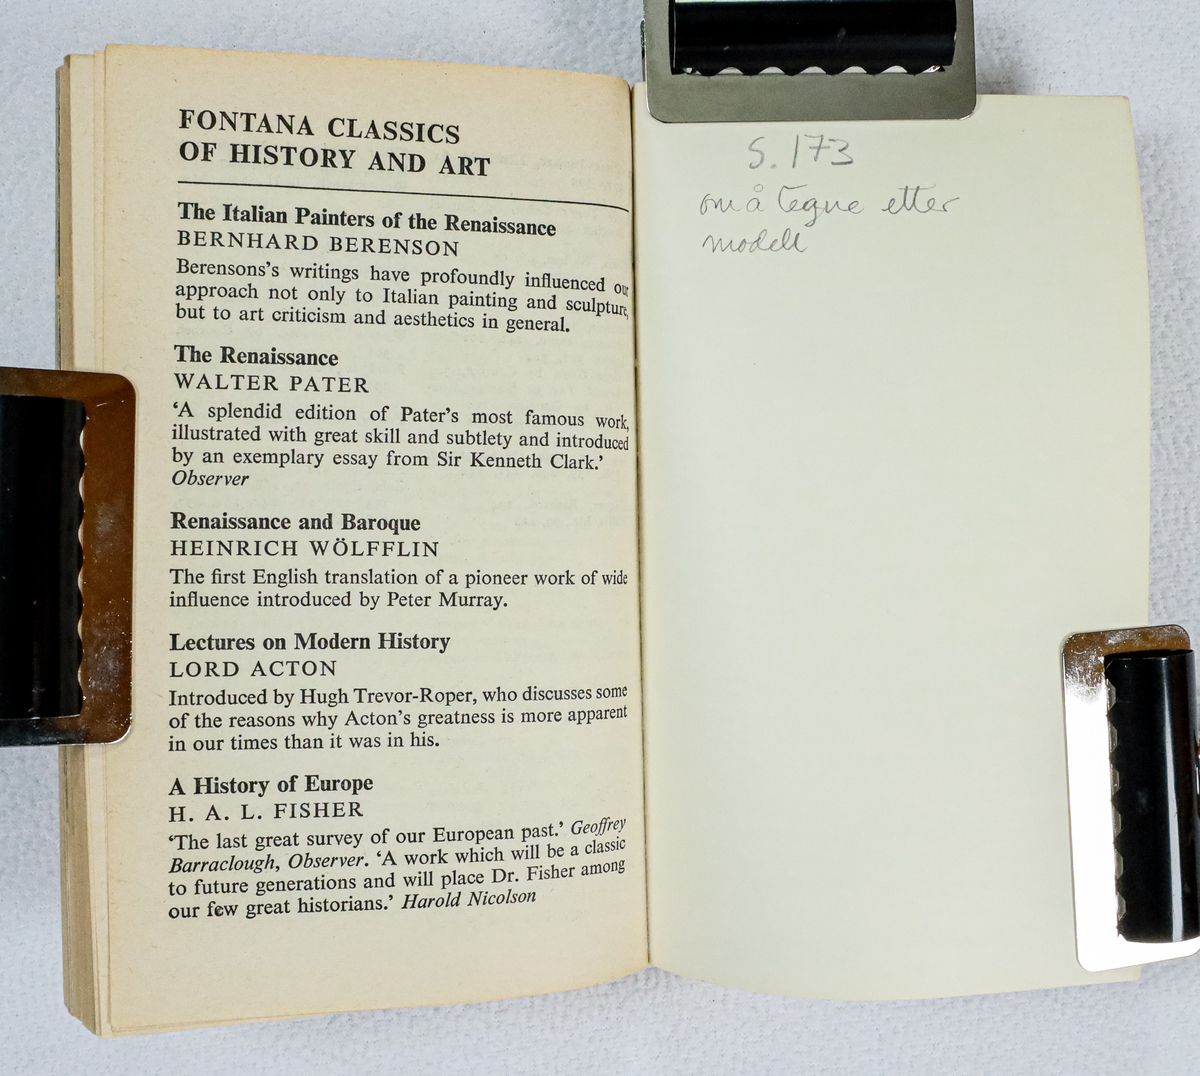 FONTANA CLASSICS
OF HISTORY AND ART
The Italian Painters of the Renaissance
BERNHARD BERENSON
Berensons's writings have profoundly influenced our
approach not only to Italian painting and sculpture,
but to art criticism and aesthetics in general.
The Renaissance
WALTER PATER
‘A splendid edition of Pater's most famous work,
illustrated with great skill and subtlety and introduced
by an exemplary essay from Sir Kenneth Clark.’
Observer
Renaissance and Baroque
HEINRICH WÖLFFLIN
The first English translation of a pioneer work of wide
influence introduced by Peter Murray.
Lectures on Modern History
LORD ACTON
Introduced by Hugh Trevor-Roper, who discusses some
of the reasons why Acton's greatness is more apparent
in our times than it was in his.
A History of Europe
H. A. L. FISHER
‘The last great survey of our European past.’ Geoffrey
Barraclough, Observer. ‘A work which will be a classic
to future generations and will place Dr. Fisher among
our few great historians.’ Harold Nicolson
S. 173
om å tegne etter
modell